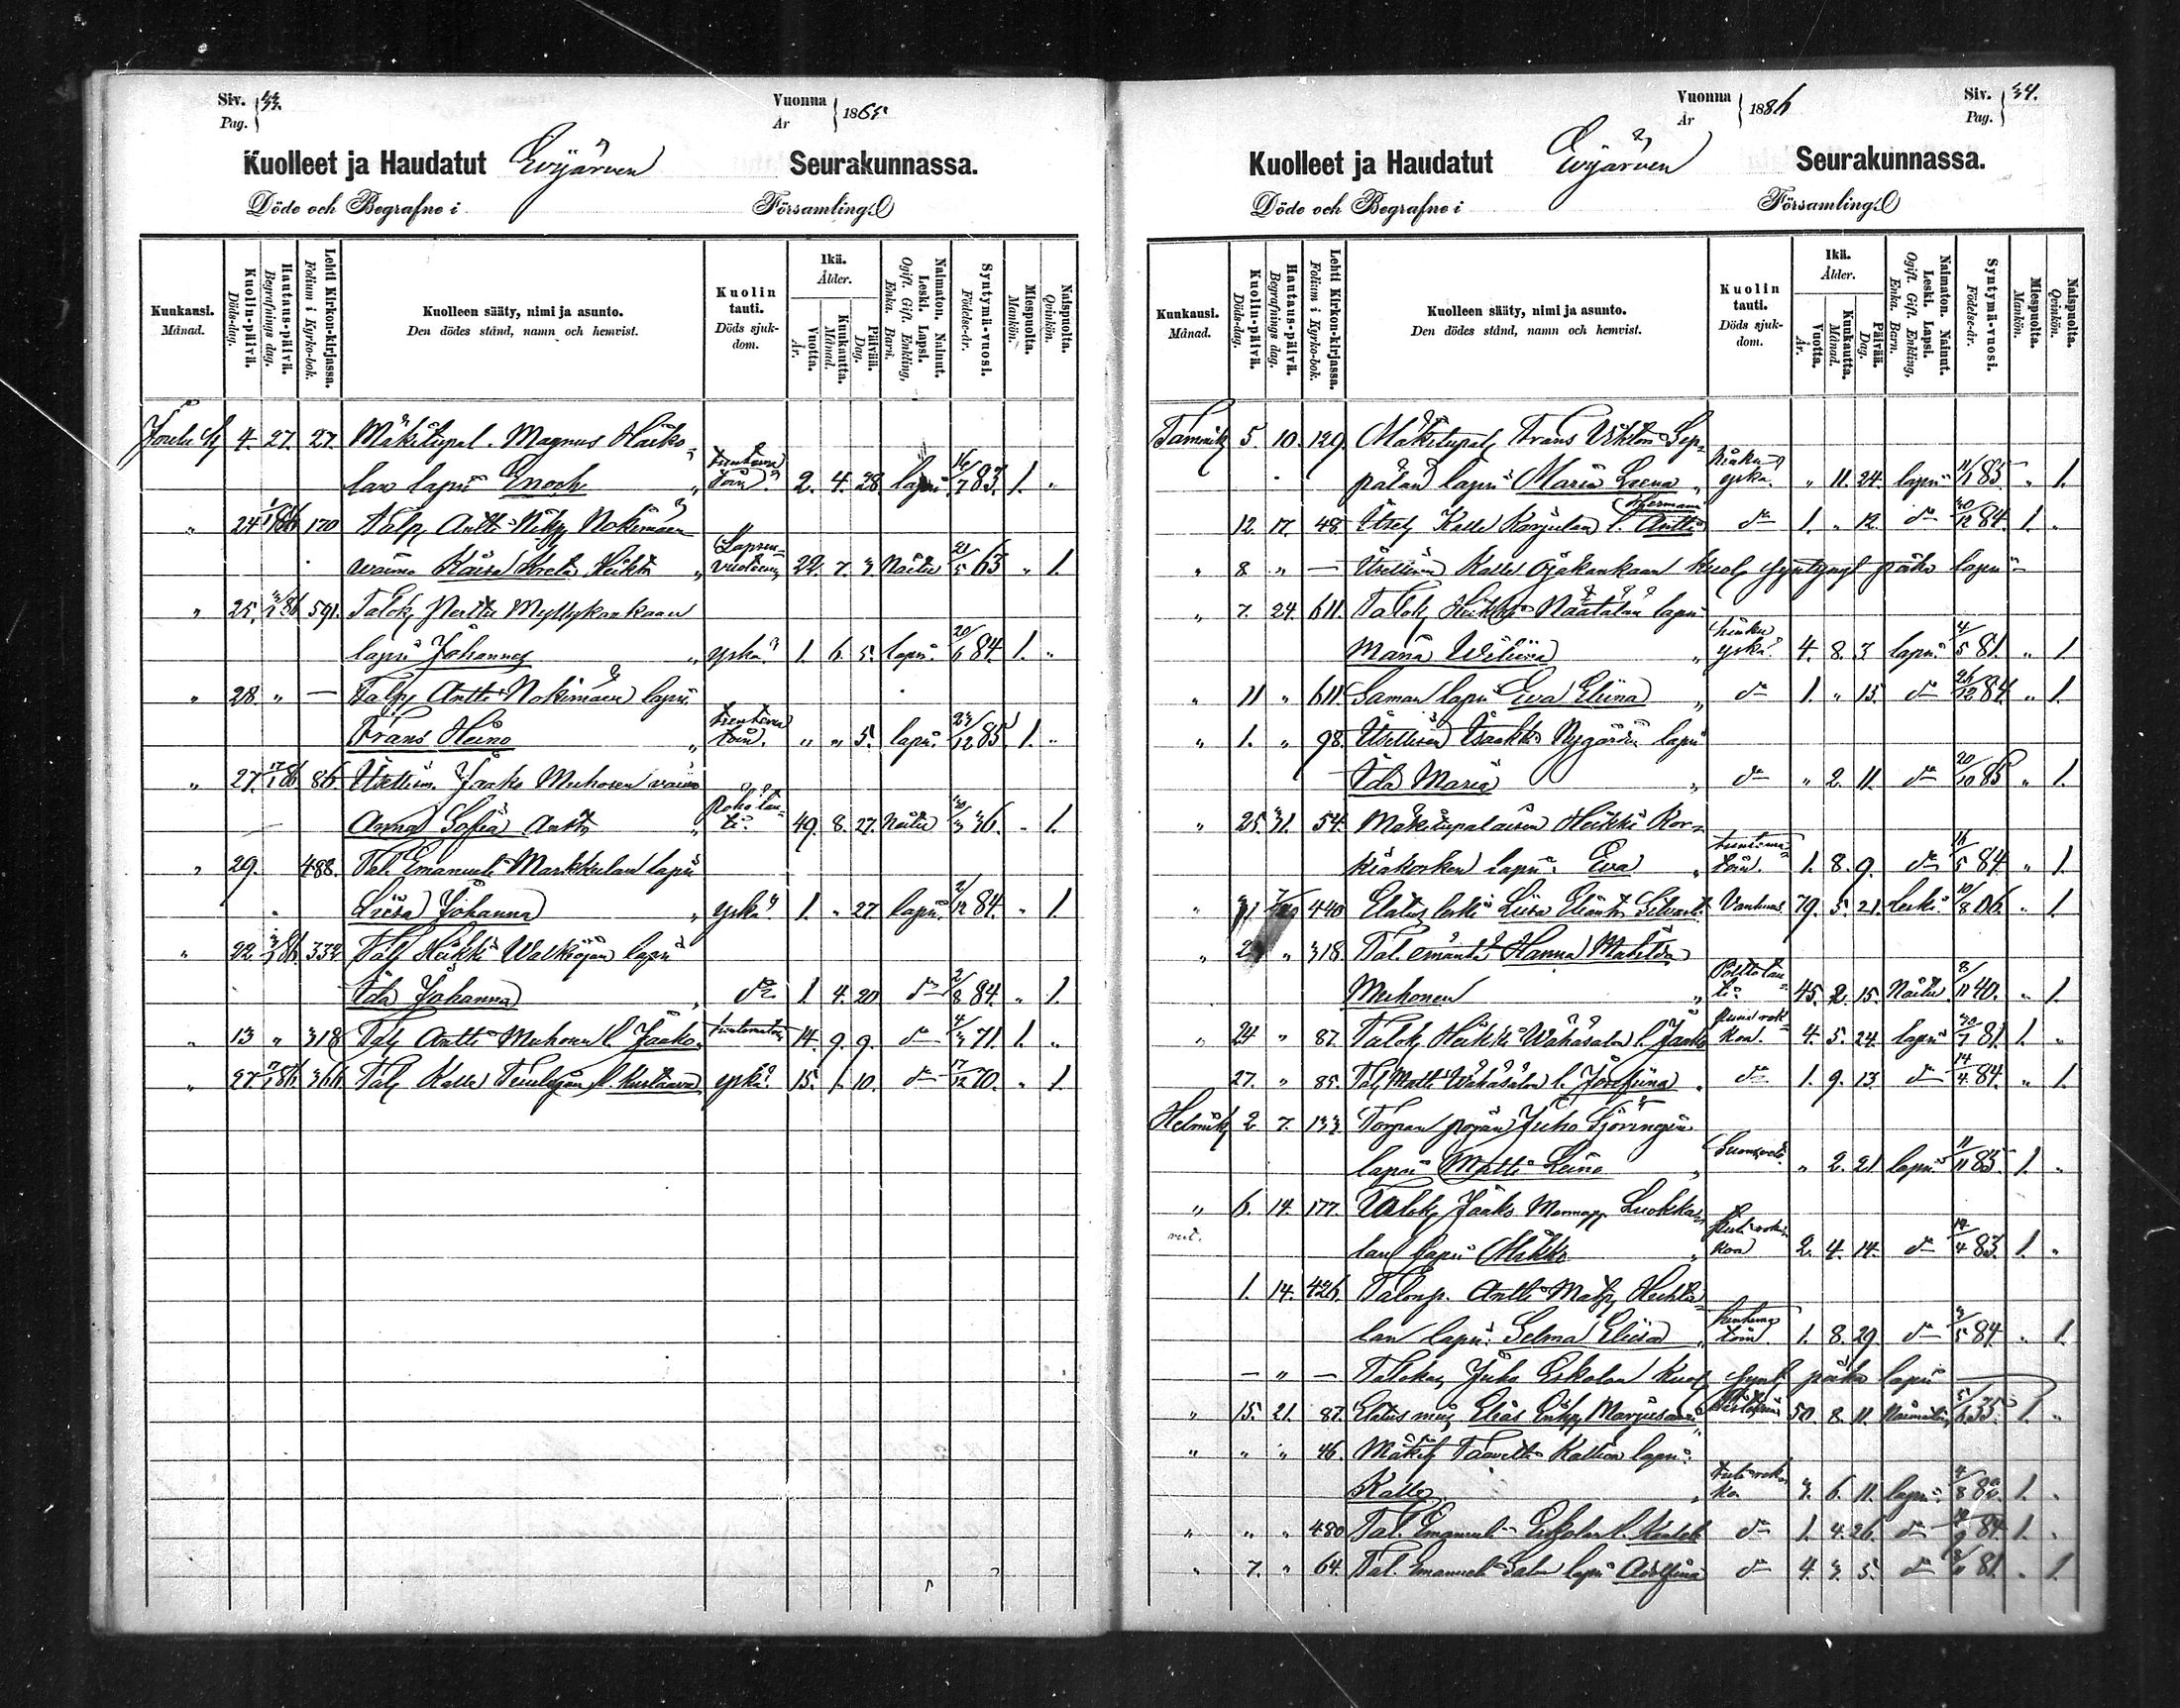 Siv. 33.
Pag.
Vuonna 1865
År
Kuolleet ja Haudatut Evijärven Seurakunnassa.
Döde och Begrafne i Församling.
Kuukausi. Månad.
Kuolin-päivä. Döds-dag.
Hautaus-päivä. Begrafnings dag.
Lehti Kirkon-kirjassa. Folium i Kyrko-bok.
Kuolleen sääty, nimi ja asunto. Den dödes stånd, namn och hemvist.
Kuolin tauti. Döds sjukdom.
Ikä. Ålder.
Vuotta. År.
Kuukautta. Månad.
Päivää. Dag.
Naimaton. Nainut. Leski. Lapsi. Ogift. Gift. Enkling, Enka. Barn.
Syntymä-vuosi. Födelse-år.
Miespuolta. Mankön.
Naispuolta. Qvinkön.
4. 27. 27. Mäkitupal. Magnus Haiko-
lan lapsi Enoch " 2. 4. 28. lapsi 16/7 83. 1. "
" 24 1/1 86 170 Talp. Antti Nokimäen "
vaimo Kaisa Kreta Heikint. " 22. 7. 3 Naitu 21/5 63 " 1.
" 25. 3/1 86 591. Talok. Perttu Myllykankaan
lapsi Johannes " yskä 1. 6. 5. lapsi 20/6 84. 1. "
" 28. " — Talp. Antti Nokimäen lapsi
Frans Heino " tuntematoin. " " 5. lapsi 23/12 85. 1. "
" 27. 17/1 86. 86 Itsellisen Jaako Muhosen vaimo
Anna Sofia Antint. " Poltotauti 49. 8. 27. Naitu 30/3 36. " 1.
" 29. 488. Tal. Emanueli Markkulan lapsi
Liisa Johanna " yskä 1. " 27. lapsi 2/12 84. " 1.
" 22. 3/1 86. 332 Tal. Heikki Walkiojan lapsi
Ida Johanna " do 1. 4. 20 do 2/8 84. " 1.
" 13 " 318 Tal. Antti Muhosen l. Jaako. tuntematoin 14. 9. 9. do 4/3 71. 1. "
" 27. 7/1 86. 366 Tal. Kalle l. Kustaava yskä 15. " 10. do 17/12 70. " 1.
Siv. 34.
Pag.
Vuonna 1886
År
Kuolleet ja Haudatut Evijärven Seurakunnassa.
Döde och Begrafne i Församling.
Kuukausi. Månad.
Kuolin-päivä. Döds-dag.
Hautaus-päivä. Begrafnings dag.
Lehti Kirkon-kirjassa. Folium i Kyrko-bok.
Kuolleen sääty, nimi ja asunto. Den dödes stånd, namn och hemvist.
Kuolin tauti. Döds sjukdom.
Ikä. Ålder.
Vuotta. År.
Kuukautta. Månad.
Päivää. Dag.
Naimaton. Nainut. Leski. Lapsi. Ogift. Gift. Enkling, Enka. Barn.
Syntymä-vuosi. Födelse-år.
Miespuolta. Mankön.
Naispuolta. Qvinkön.
Tammik. 5. 10. 129. Mäkitupal. Frans Viktor Sep-
pälän lapsi Maria Leena " hinkuyskä. " 11. 24. lapsi 11/1 85 " 1.
Hermanni
12. 17. 48. Itsel. Kalle Karjulan l. Antti do 1. " 12. do 30/12 84. 1. "
" 8. " — Itsellisen Kalle Ojakankaan kuol. syntynyt poika lapsi
" 7. 24. 611. Talok. Heikki Näätälän lapsi
Maria Wiliina " hinkuyskä. 4. 8. 3 lapsi 4/5 81. " 1.
" 11 " 611. Saman lapsi Eva Eliina " do 1. " 15. do 26/12 84 " 1.
" 1. " 98. Itsellisen Isaakki Nygårdin lapsi
Ida Maria " do " 2. 11. do 20/10 85 " 1.
" 25. 31. 54. Mäkitupalaisen Heikki Kor-
kiakosken lapsi Eva " tuntematoin. 1. 8. 9. do 16/5 84 " 1.
" 31. 440 Elätus leski Liisa Vanhuus 79. 5. 21. Leski 10/8 06. " 1.
" " 318. Tal. emäntä Hanna Matilda
Muhonen " Polttotauti 45. 2. 15. Naitu 8/11 40. " 1.
" 24 " 87. Talok. Heikki Wähäsalon l. Jaako 4. 5. 24. lapsi 30/7 81. 1. "
27. " 85. Tal. Matti Wähäsalon l. Josefiina " do 1. 9. 13. do 14/4 84. " 1.
Helmik. 2 7. 133. Torpan pojan Juho Sjöringin
lapsi Matti Leino " " 2. 21 lapsi 11/11 85. 1. "
" 6. 14. 177. Talok. Jaako Luokka-
lan lapsi Mikko " 2. 4. 14. do 14/4 83 1. "
1. 14. 426. Talonp. Antti
lan lapsi Selma Eliisa " tuntematoin 1. 8. 29. do 3/5 84. " 1.
— " — Talokas. Juho Eskolan kuol. synt. poika lapsi —
" 15. 21. 87. Elätus mies Elias 50 8. 11. Naimaton 5/6 35. 1. "
" " " 46. Mäkit. Taavetti Kattion lapsi
Kalle " 3. 6. 11. lapsi 4/8 82. 1. "
" " " 480 Tal. Emanueli Eskolan l. do 1. 4. 26. do 84. 1. "
" 7. " 64. Tal. Emanueli Salon lapsi Adolfiina do 4. 3. 5. do 81. " 1.